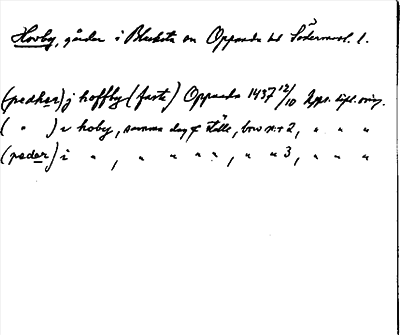 Hovby, gården i Blacksta sn Oppunda hd Södermanl. l.
(pedhar) j hoffby (faste) Oppunda 1437 12/10 Upps. dipl. orig.
( " ) i hoby, samma dag o ställe, brev nr 2, " " "
(peder) i " , " " " " , " " 3, " " "